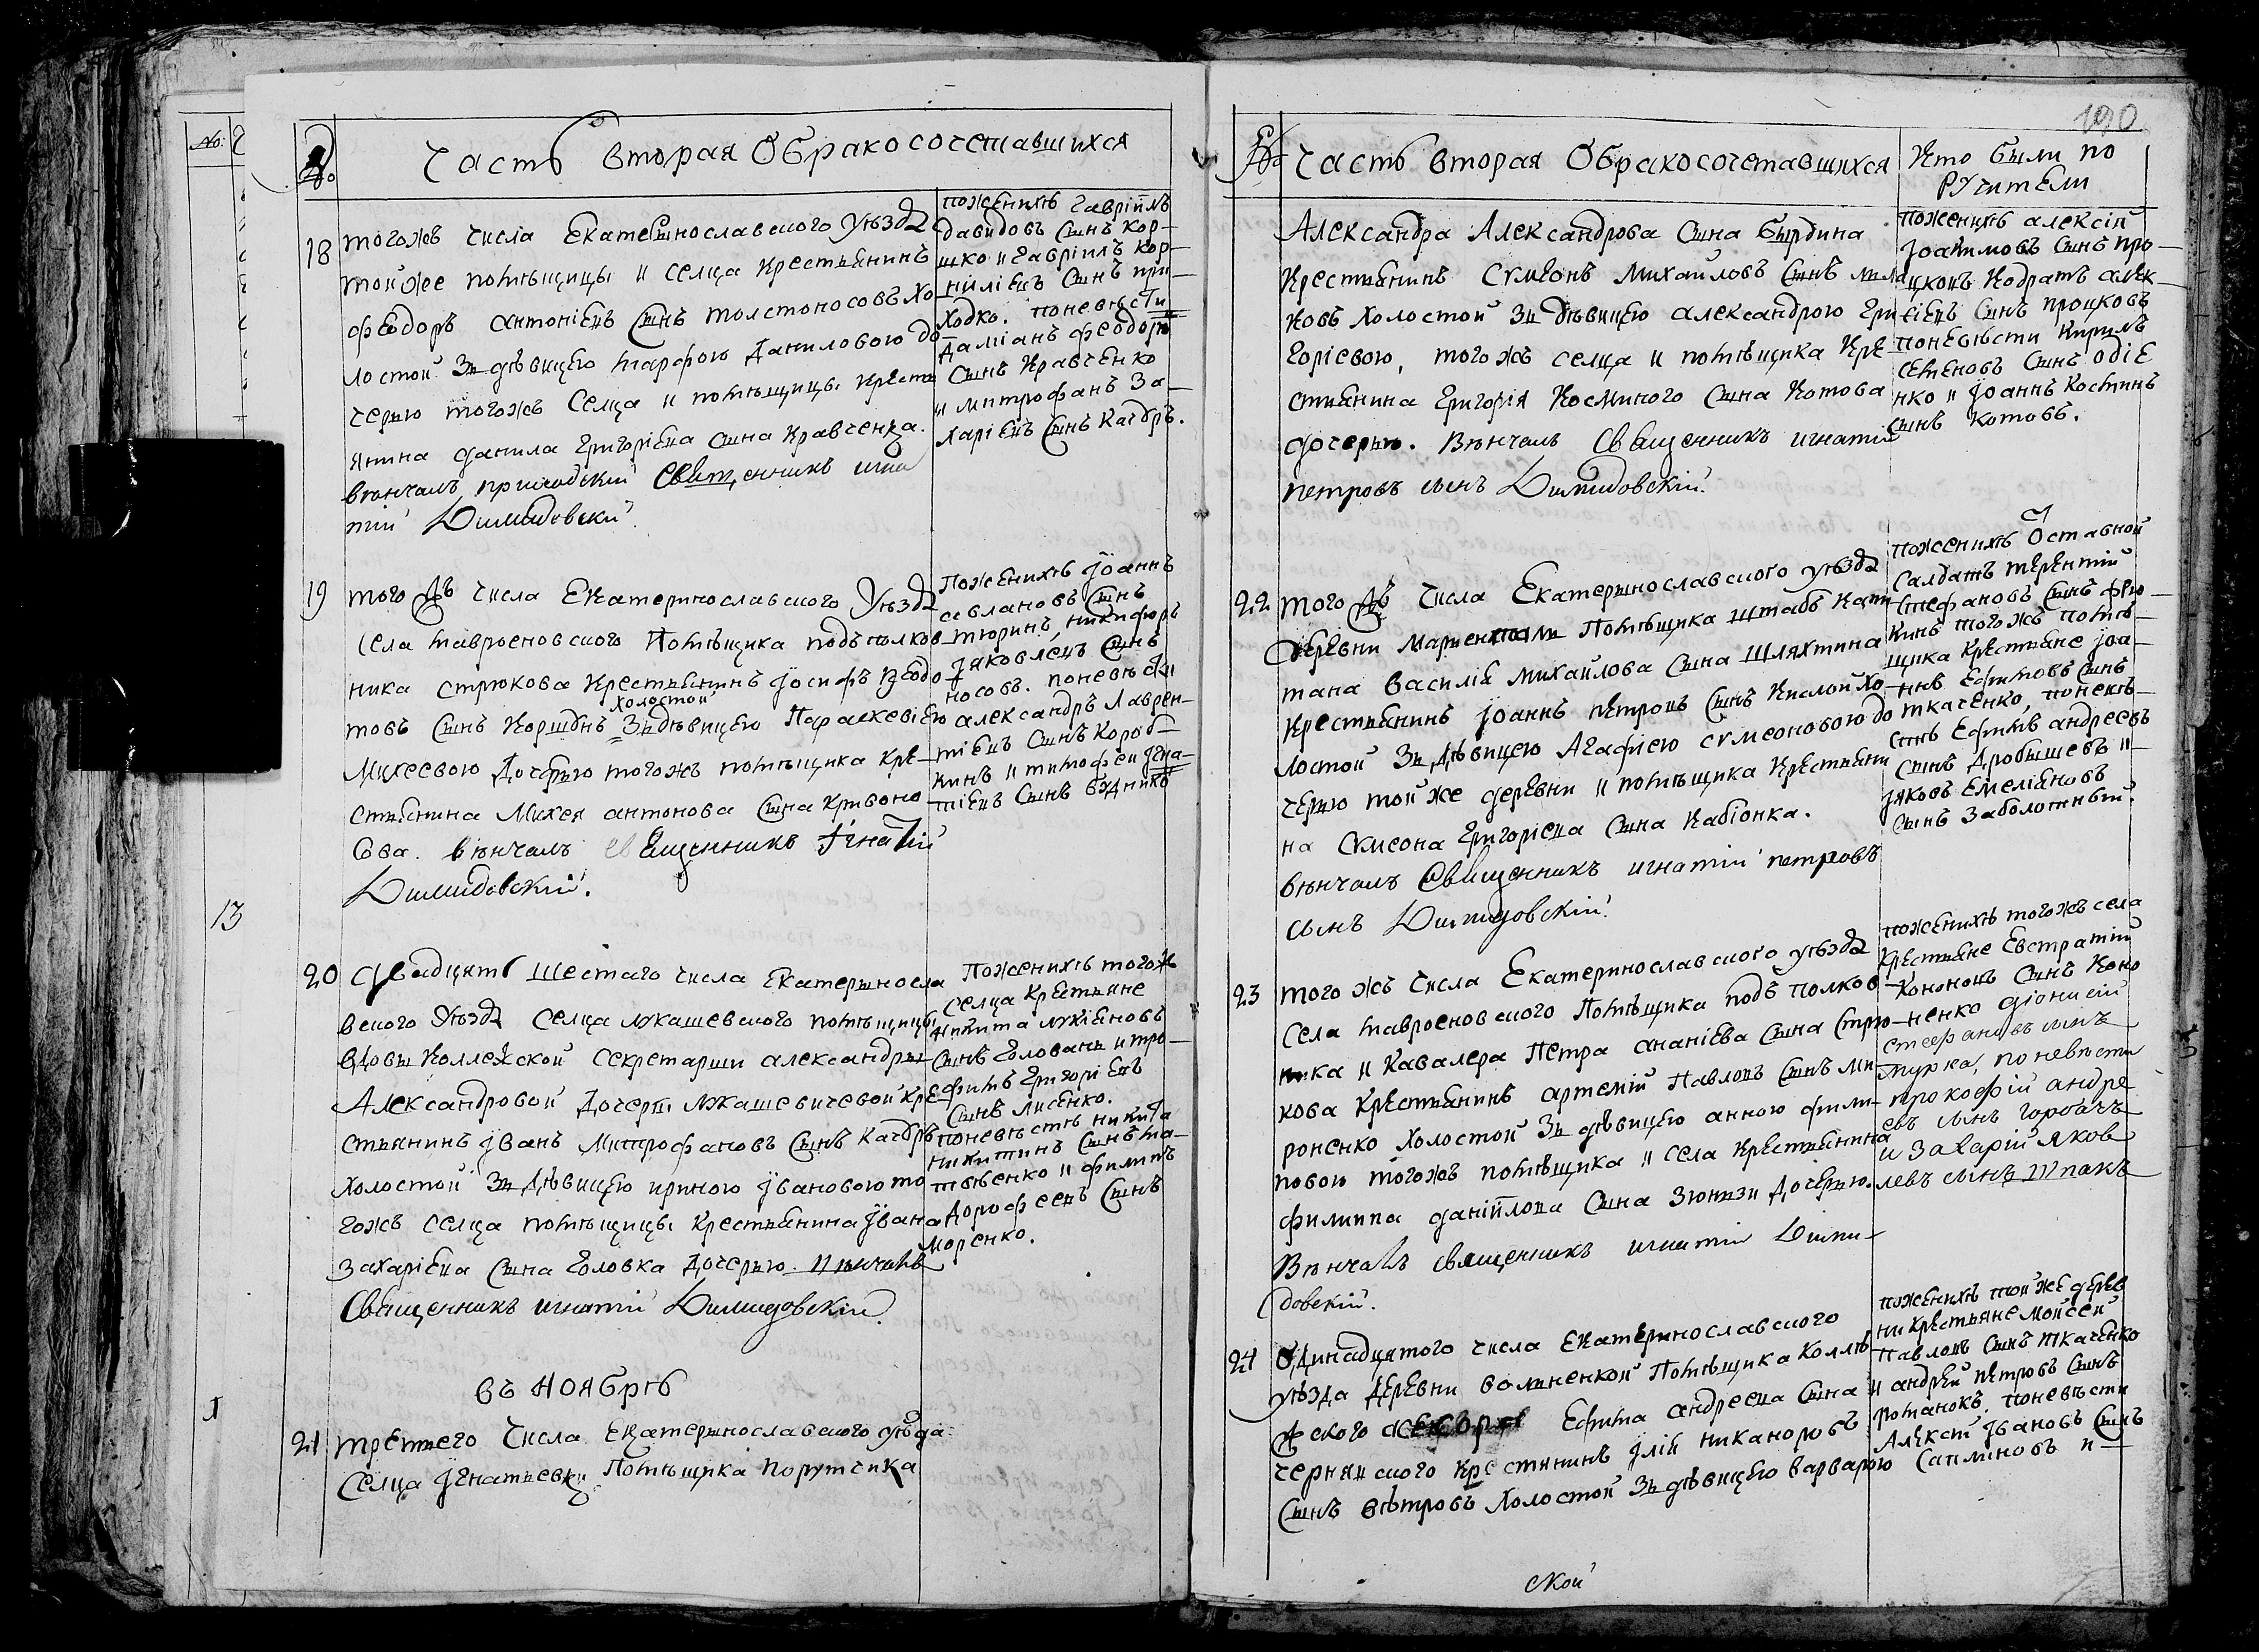 №
Часть вторая Обракосочетавшихся
18
тогожъ числа Екатеринославского уезда
тойже помѣщицы и селца крестьянинъ
феодоръ антоніевъ сынъ толстоносовъ хо-
лостой зъ дѣвицею марфою даниловою до
черью тогожъ селца и помѣщицы кресть
янина данила григоріева сына кравченка.
вѣнчалъ приходскій священникъ игна
тій Дилидовскій.
пожениху гавріилъ
давидовъ сынъ кор-
шко и гавріилъ кор-
нилієвъ сынъ при-
ходко. поневѣсти
даміанъ феодоровъ
сынъ кравченко
и митрофанъ за-
харієвъ сынъ качбръ.
19
того жъ числа Екатеринославского уезда
села мавроеновского помѣщика подъполков
ника стрюкова крестьянинъ іосифъ
товъ сынъ холостой зъ дѣвицею параскевією
михеевою дочерью тогожъ помѣщика кре-
стьянина михея антонова сына кривоно
сова. вѣнчалъ священникъ ігнатій
Дилидовскій.
пожениху іоаннъ
сынъ
тюринъ, никифоръ
яковлевъ сынъ
носовъ. поневѣсти
александръ лаврен-
тієвъ сынъ
кинъ и тимофеи ігна-
тієвъ сынъ
20
двадцять шестаго числа Екатериносла
вского уезда селца лукашевского помѣщицы
вдовы коллежской секретарши александры
александровой дочери лукашевичевой кре-
стьянинъ іванъ митрофановъ сынъ качбръ
холостой зъ дѣвицею ириною івановою то
гожъ селца помѣщицы крестьянина івана
захарієва сына головка дочерью. вѣнчалъ
священникъ игнатій Дилидовскій.
пожениху тогожъ
селца крестьяне
никита лукіановъ
сынъ голованъ и тро-
фимъ григорієвъ
сынъ лисенко.
поневѣсте никита
никитинъ сынъ ма-
твѣенко и филипъ
дорофеевъ сынъ
моренко.
въ ноябрѣ
21
третьего числа Екатеринославского уезда
селца ігнатьевки помѣщика порутчика
190
№
Часть вторая Обракосочетавшихся
Кто были по
ручители
Александра Александрова сына бырдина
крестьянинъ сумеонъ михайловъ сынъ мила
ховъ холостой зъ дѣвицею александрою гри
горієвою, тогожъ селца и помѣщика кре-
стьянина григорія косминого сына котова
дочерью. вѣнчалъ священникъ игнатій
петровъ сынъ Дилидовскій.
пожениху алексій
іоакимовъ сынъ про-
цковъ кодратъ алек-
сієвъ сынъ процковъ
поневѣсти кирилъ
семеновъ сынъ одіє
нко и іоаннъ косминъ
сынъ котовъ.
22
того жъ числа Екатеринославского уезда
деревни помѣщика штабъ капи
тана василія михайлова сына шляхтина
крестьянинъ іоаннъ петровъ сынъ кислой хо-
лостой зъ дѣвицею агафією сумеоновою до
черью той же деревни и помѣщика крестьяни
на сумеона григорієва сына кабіонка.
вѣнчалъ священникъ игнатій петровъ
сынъ Дилидовскій.
пожениху отставной
салдатъ терентій
стефановъ сынъ
кинъ тогожъ помѣ-
щика крестьяне іоа-
ннъ ефимовъ сынъ
ткаченко, поневѣ-
стѣ ефимъ андреевъ
сынъ дробышевъ и
яковъ емеліановъ
сынъ заболотный.
23
того жъ числа Екатеринославского уезда
села мавроеновского помѣщика подъ полков
ника и кавалера петра ананієва сына стрю-
кова крестьянинъ артемій павловъ сынъ ми-
роненко холостой зъ дѣвицею анною фили-
повою тогожъ помѣщика и села крестьянина
филиппа даніилова сына зюнзи дочерью.
вѣнчалъ священникъ игнатій Дили-
довскій.
пожениху тогожъ села
крестьяне евстратій
кононовъ сынъ коно
ненко діонисій
стефановъ сынъ
турка, по невѣсти
прокофій андре
евъ сынъ горбачъ
и захарій яков
левъ сынъ шпакъ
24
одинадцятого числа Екатеринославского
уезда деревни волненкой помѣщика коллѣ
жского секрѣ ефима андреева сына
чернявского крестянинъ ілій никаноровъ
сынъ вѣтровъ холостой зъ дѣвицею варварою
пожениху той же дерев
ни крестьяне мойсей
павловъ сынъ ткаченко
и андрей петровъ сынъ
романокъ. поневѣсти
алексій івановъ сынъ
саплиновъ и
ской